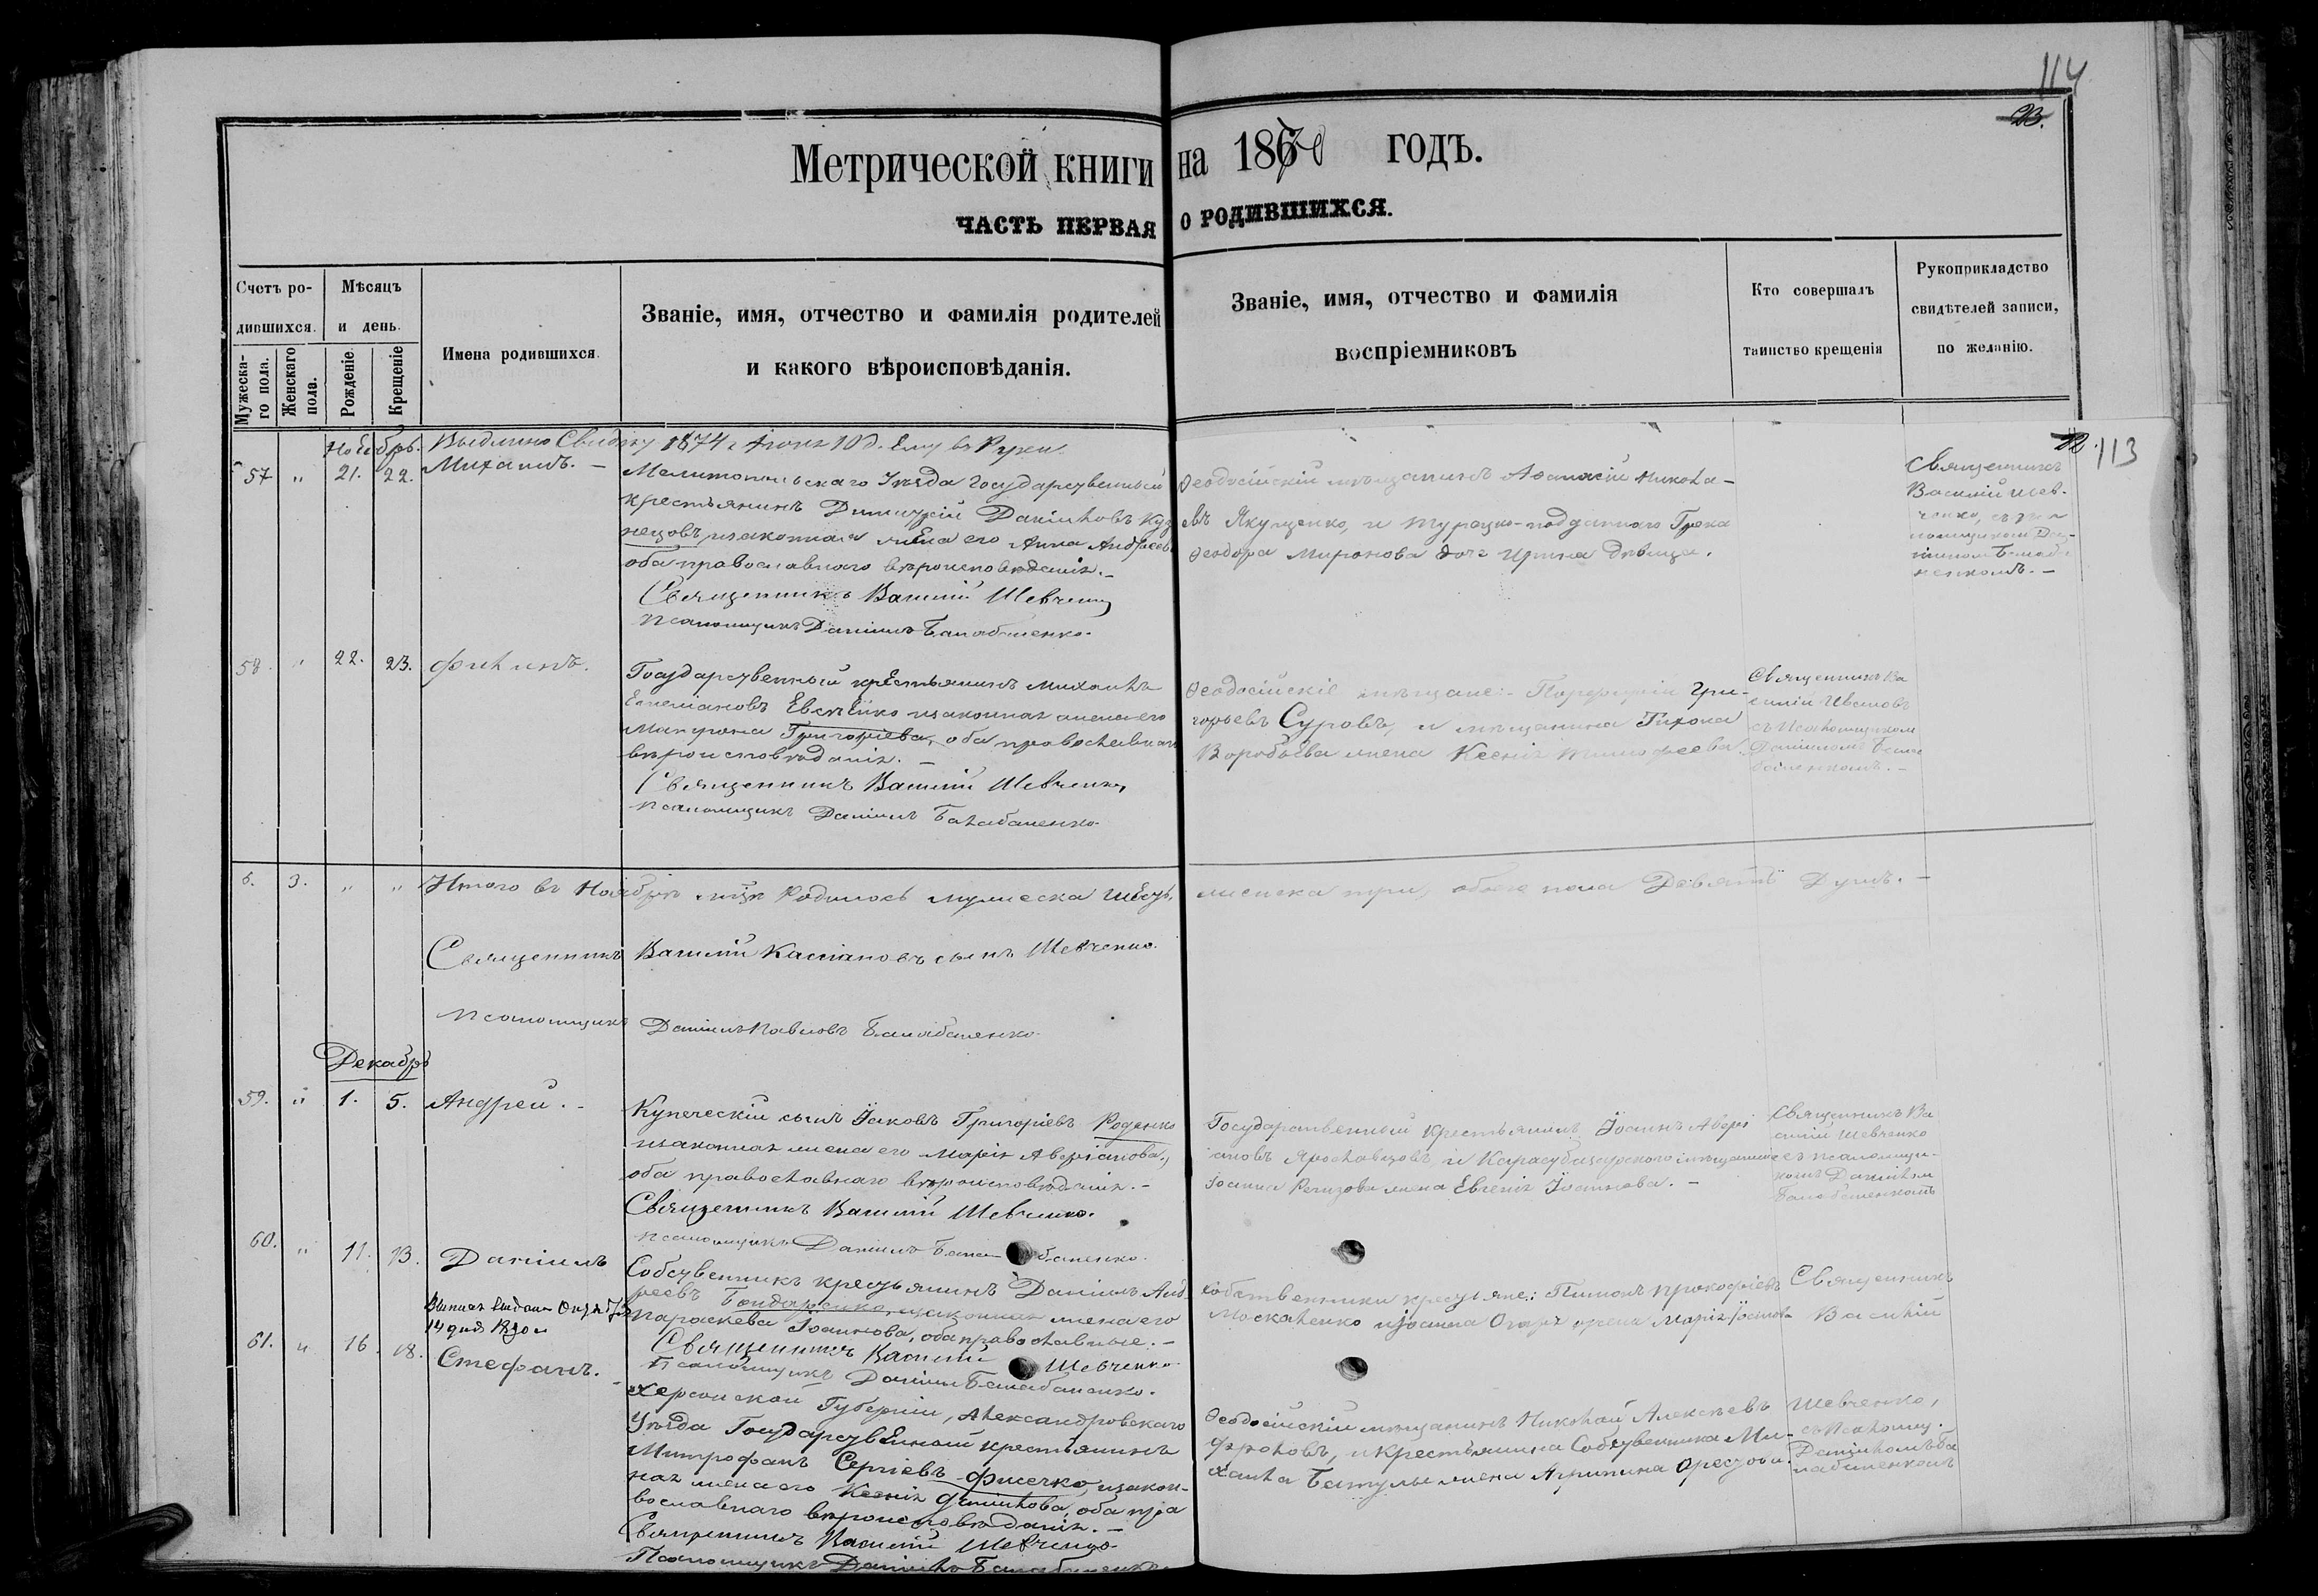 114
23.
Метрической книги на 1870 годъ.
ЧАСТЬ ПЕРВАЯ О РОДИВШИХСЯ.
Счетъ ро-
дившихся.
Мужеска-
го пола.
Женскаго
пола.
Мѣсяцъ
и день.
Рожденіе.
Крещеніе
Имена родившихся.
Званіе, имя, отчество и фамилія родителей
и какого вѣроисповѣданія.
Званіе, имя, отчество и фамилія
воспріемниковъ
Кто совершалъ
таинство крещенія
Рукоприкладство
свидѣтелей записи,
по желанію.
113
Ноябрь.
1874 г 10 д. Ему въ Руки
57 " 21. 22. Михаилъ. –
Мелитопольскаго Уѣзда Государственный
крестьянинъ Димитрій Даніиловъ Куз
нецовъ, изаконная жена его Анна Андреев
оба православнаго вѣроисповѣданія. –
Священникъ Василій Шевченко
Псаломщикъ Даніилъ Балабаненко.
Ѳеодосійскій мѣщанинъ Аѳанасій Никола-
евъ Якущенко, и турецко-подданнаго Грека
Ѳеодора Миронова дочь Ирина дѣвица.
Священникъ
Василій Шев-
ченко, съ
псаломщикомъ Да-
ніиломъ Балаба
ненкомъ. –
58. " 22. 23. Филипъ.
Государственный крестьянинъ Михаилъ
Евсѣенко изаконная жена его
Матрона Григоріева, оба православнаго
вѣроисповѣданія. –
Священникъ Василій Шевченко,
Псаломщикъ Даніилъ Балабаненко.
Ѳеодосійскіе мѣщане:- Порфирій Гри-
горьевъ Суровъ, и мѣщанина Тихона
Воробьева жена Ксенія Тимофеева.
Священникъ Ва
силій Ивановъ
съ Псаломщикомъ
Даніиломъ Бала
баненкомъ. –
6. 3. " " Итого въ Ноябрѣ м-цѣ Родилось мужеска шесть,
женска три, обоего пола Девять Душъ. –
Священникъ Василій Кассіановъ сынъ Шевченко.
Псаломщикъ Даніилъ Павловъ Балабаненко.
Декабрь
59. " 1. 5. Андрей. –
Купеческій сынъ Іаковъ Григоріевъ Роденко
изаконная жена его Марія Аверіанова,
оба православнаго вѣроисповѣданія. –
Священникъ Василій Шевченко.
Псаломщикъ Даніилъ Балабаненко.
Государственный Крестьянинъ Іоаннъ Авері
ановъ Ярославцовъ, и Карасубазарскаго мѣщанина
Іоанна жена Евгенія Іоаннова. –
Священникъ Ва
силій Шевченко
съ псаломщи-
комъ Даніиломъ
Балабаненкомъ
60. " 11. 13. Даніилъ
14 дня 1890 г
Собственникъ крестьянинъ Даніилъ Анд
реевъ Бондаренко, изаконная жена его
Параскева Іоаннова, оба православные. –
Священникъ Василій Шевченко.
Псаломщикъ Даніилъ Балабаненко.
Собственники крестьяне: Пименъ Прокофіевъ
Москаленко и Іоанна жена Марія Іоаннова
Священникъ
Василій
61. " 16. 18. Стефанъ.
Херсонской Губерніи, Александровскаго
Уѣзда Государственный крестьянинъ
Митрофанъ Сергіевъ Фисечко, изакон-
ная жена его Ксенія Даніилова, оба пра
вославнаго вѣроисповѣданія. –
Священникъ Василій Шевченко.
Псаломщикъ Даніилъ Балабаненко
Ѳеодосійскій мѣщанинъ Николай Алексѣевъ
Фроловъ, и крестьянина Собственника Ми-
хаила Батулы жена Агрипина Орестова.
Шевченко,
съ Псаломщ.
Даніиломъ Ба
лабаненкомъ